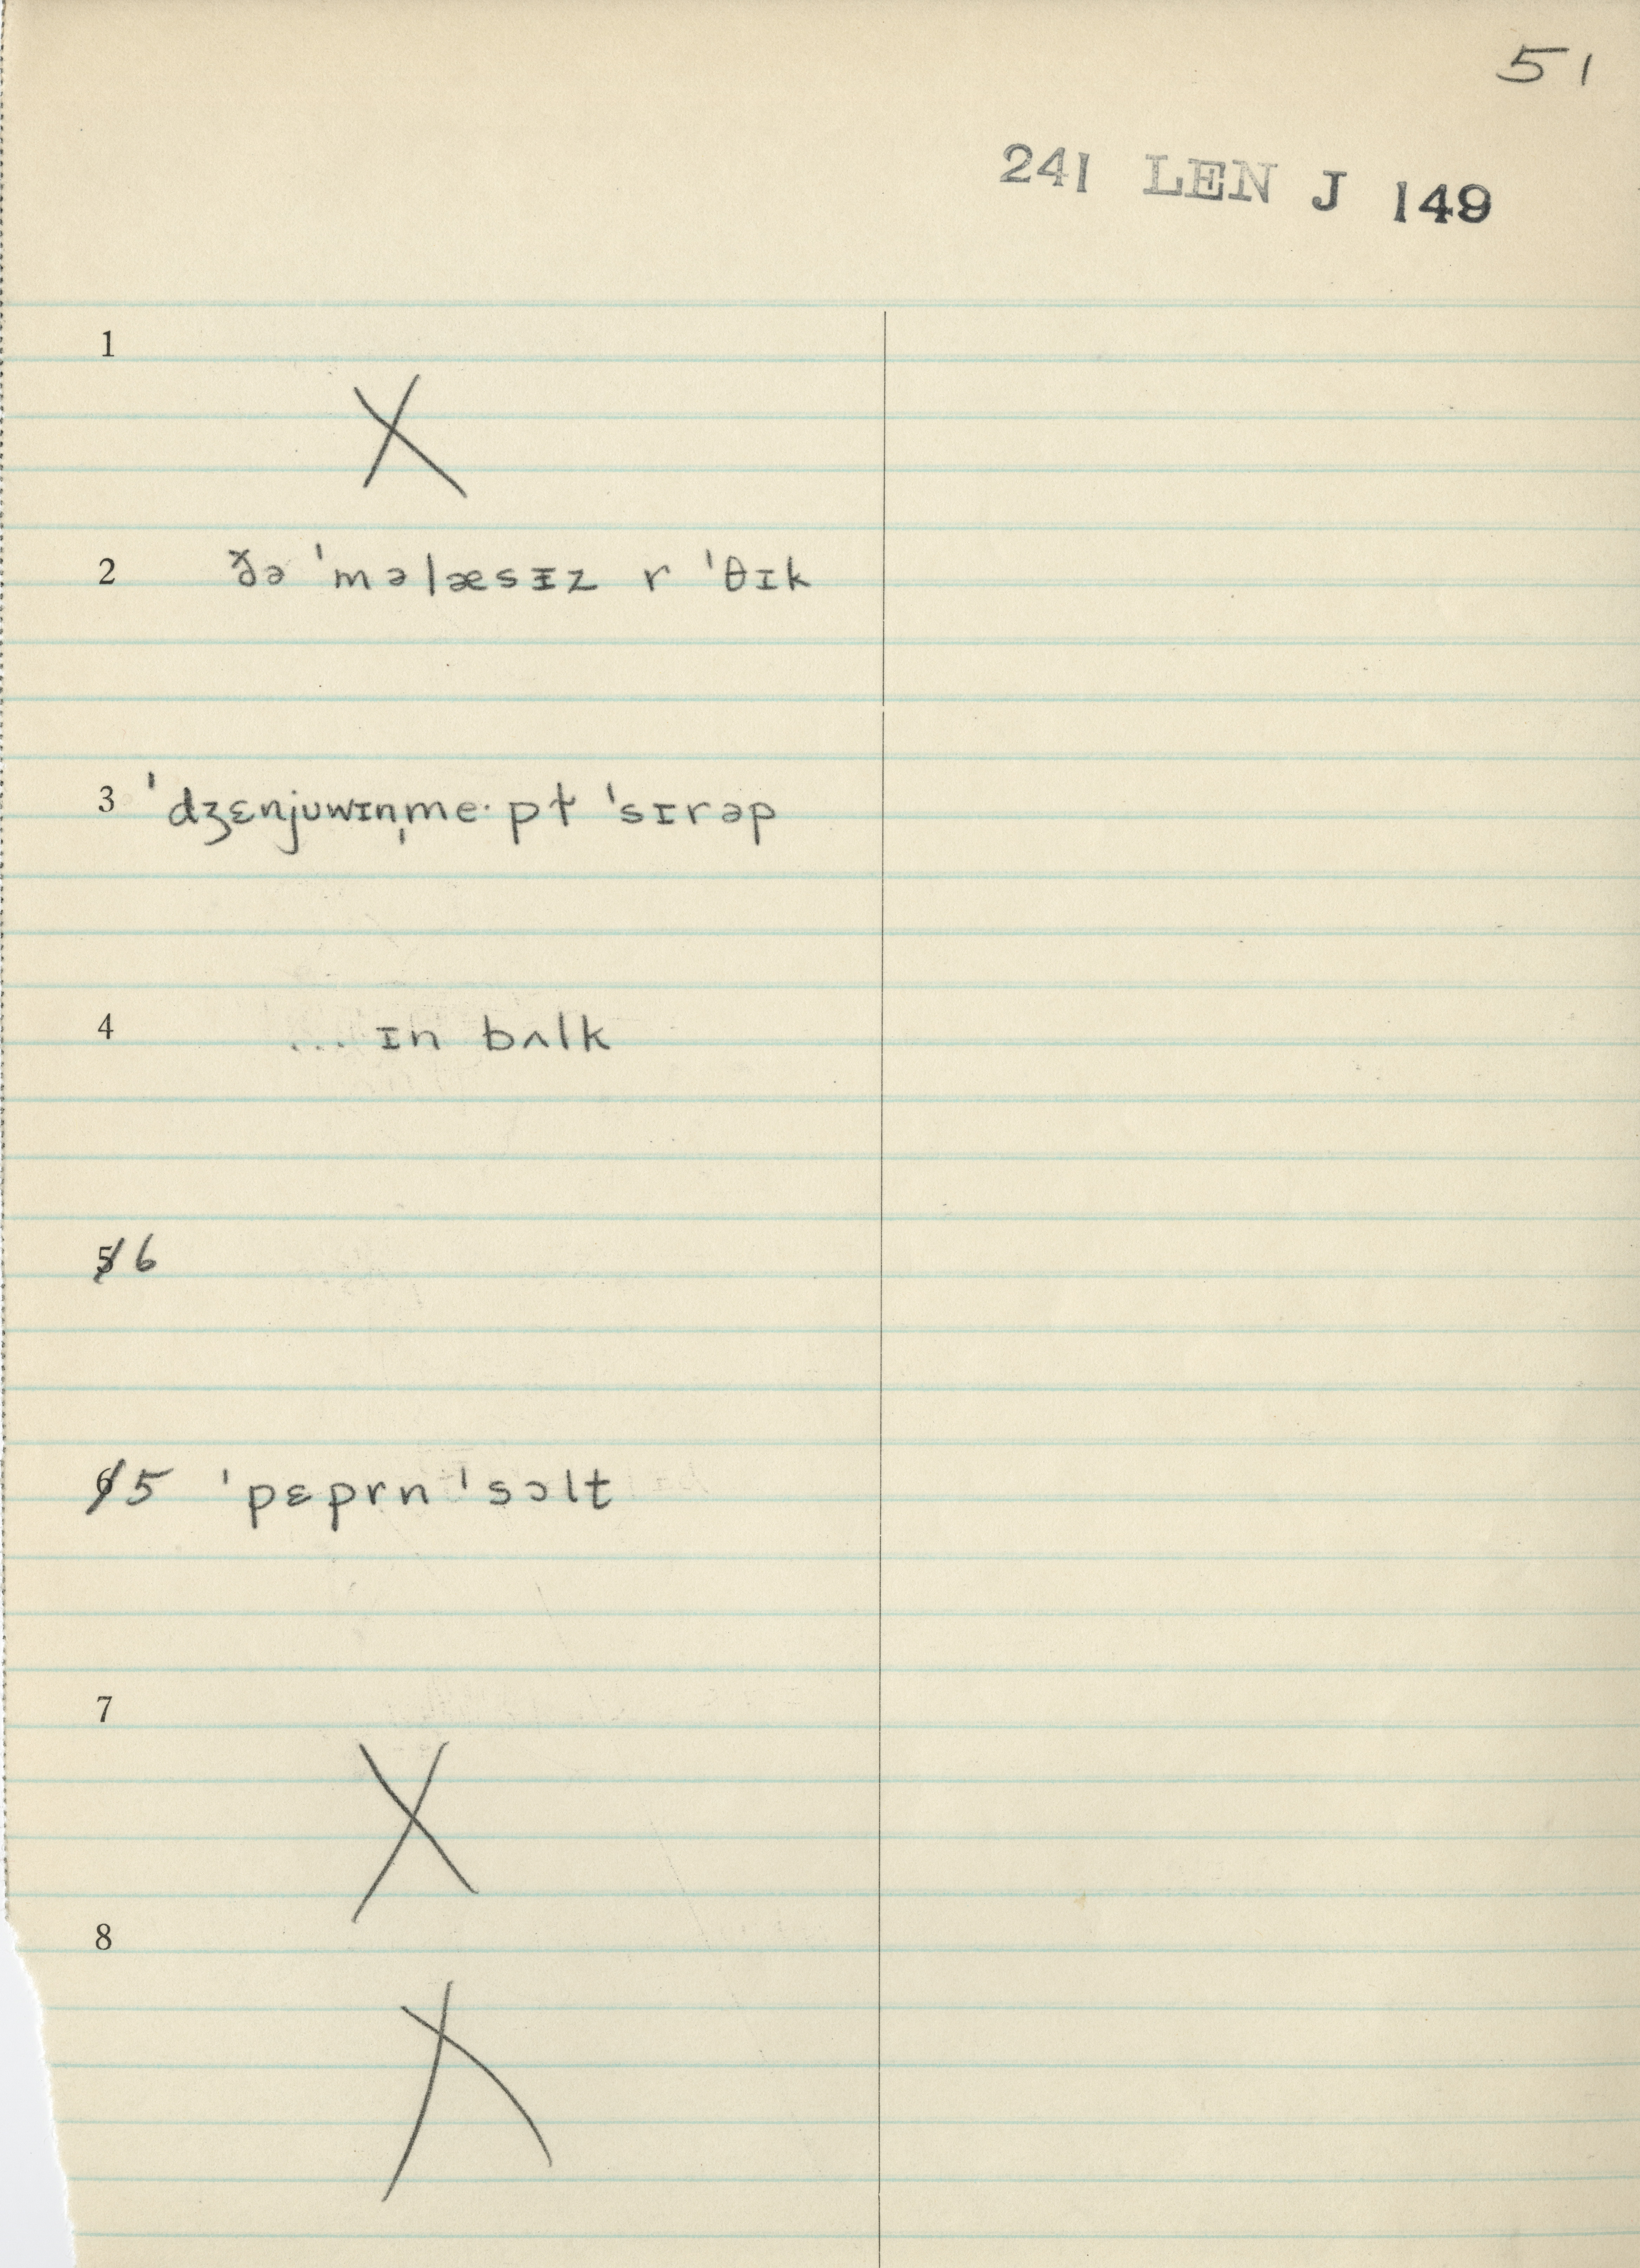 51
241 LEN J 149
1
X
2 ðə ˈməlæsɪz r ˈθɪk
3 ˈdʒɛnjʊwɪnˌme·pɫ ˈsɪrəp
4 ... ɪn bʌlk
5̸ 6
6̸ 5 ˈpɛprn ˈsɔlt
7
X
8
X